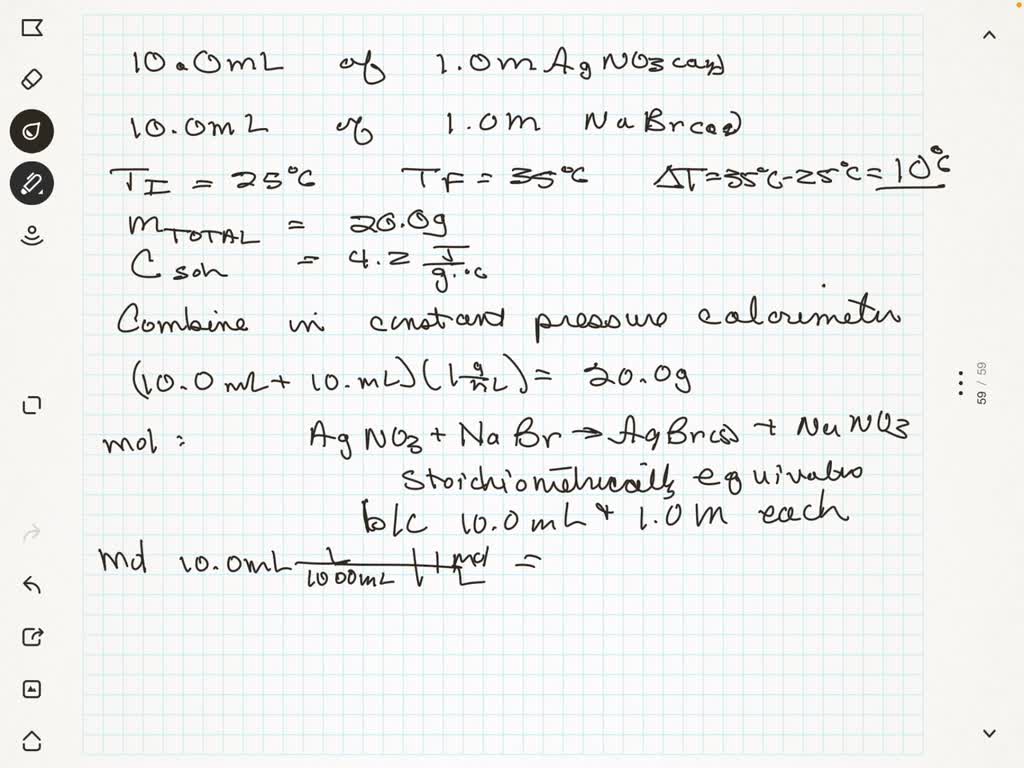 10.0mL of 1.0m AgNO3(aq)
10.0mL of 1.0m NaBr(aq)
TI = 25°C TF = 35°C ΔT=35°C-25°C= 10°C
mTOTAL = 20.0g
Csoln = 4.2 J/g·°C
Combine in constant pressure calorimeter
(10.0 mL + 10. mL)(1 g/mL) = 20.0g
mol : AgNO3 + NaBr → AgBr(s) + NaNO3
Stoichiometrically equivalent
b/c 10.0 mL + 1.0M each
mol 10.0mL L/1000mL | 1 mol/L =
59 / 59